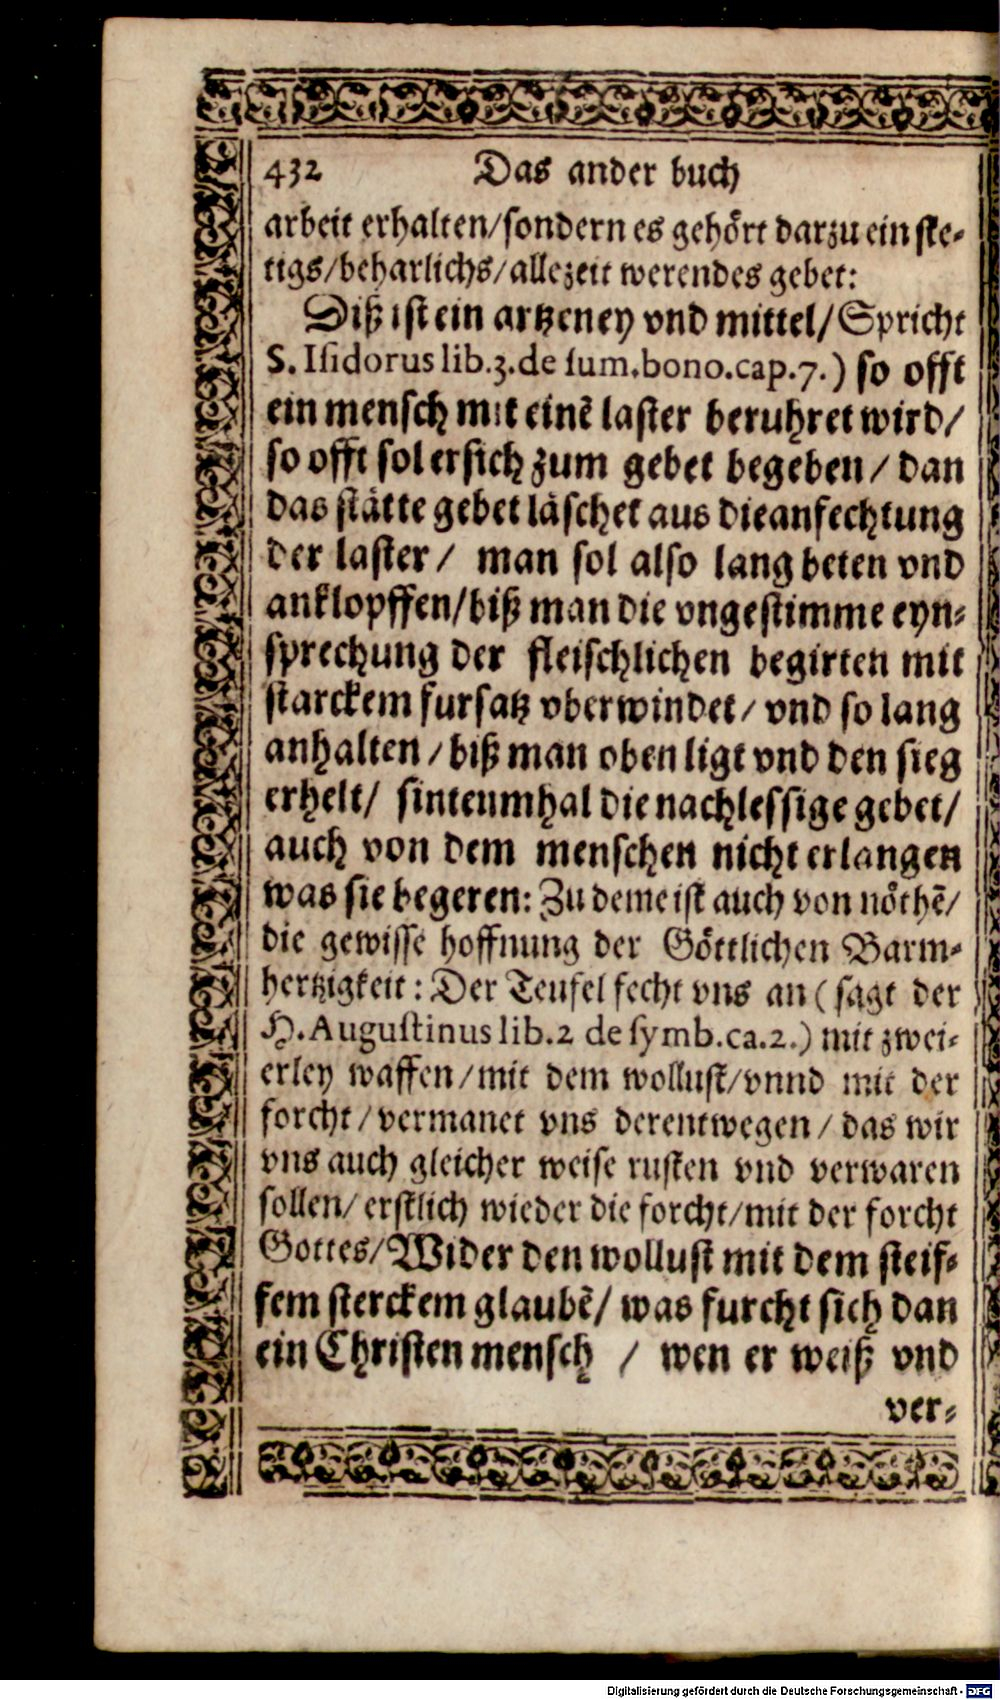 432 Das ander buch
arbeit erhalten/sondern es gehört darzu ein ste-
tigs/beharlichs/allezeit werendes gebet:
Diß ist ein artzeney vnd mittel/Spricht
S. Isidorus lib.3.de sum.bono.cap.7.) so offt
ein mensch mit einẽ laster beruhret wird/
so offt sol er sich zum gebet begeben/ dan
das stätte gebet läschet aus die anfechtung
der laster/ man sol also lang beten vnd
anklopffen/biß man die vngestimme eyn-
sprechung der fleischlichen begirten mit
starckem fursatz vberwindet/ vnd so lang
anhalten/biß man oben ligt vnd den sieg
erhelt/ sinteumhal die nachlessige gebet/
auch von dem menschen nicht erlangen
was sie begeren: Zu deme ist auch von nöthẽ/
die gewisse hoffnung der Göttlichen Barm-
hertzigkeit: Der Teufel fecht vns an (sagt der
H. Augustinus lib.2 de symb.ca.2.) mit zwei-
erley waffen/mit dem wollust/vnnd mit der
forcht/vermanet vns derentwegen/das wir
vns auch gleicher weise rusten vnd verwaren
sollen/ erstlich wieder die forcht/mit der forcht
Gottes/Wider den wollust mit dem steif-
fem sterckem glaubẽ/ was furcht sich dan
ein Christen mensch / wen er weiß vnd
ver-
Digitalisierung gefördert durch die Deutsche Forschungsgemeinschaft - DFG